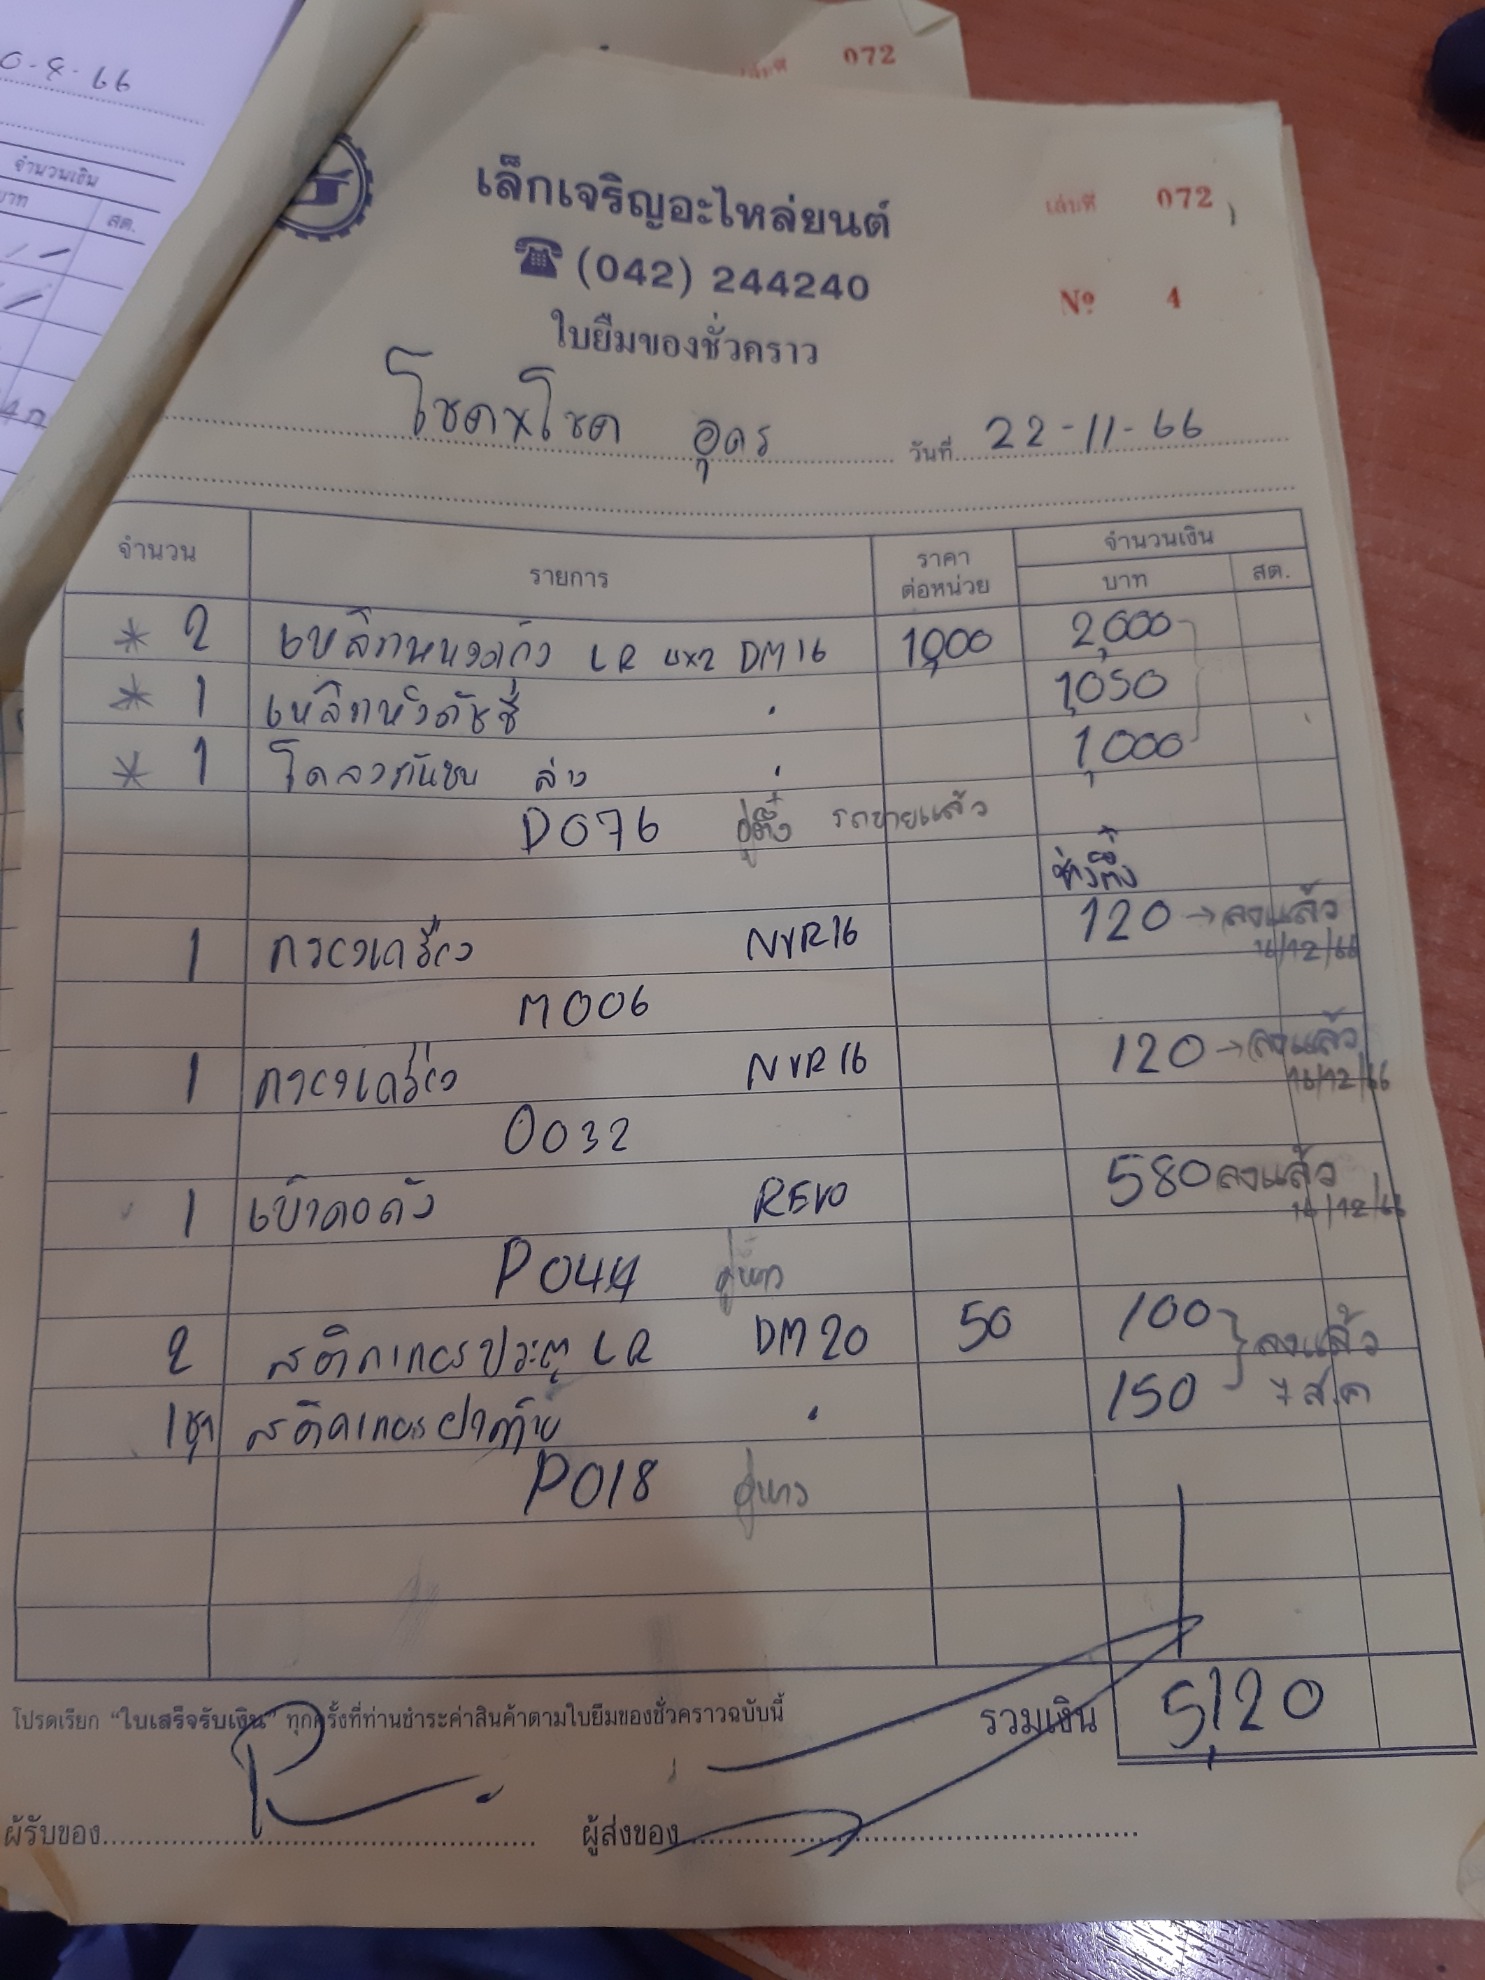 0-8-66
จำนวนเงิน
บาท สต.
เล่มที่ 072
เล็กเจริญอะไหล่ยนต์
เล่มที่ 072
(042) 244240
Nº 4
ใบยืมของชั่วคราว
โชคxโชค อุดร วันที่ 22-11-66
จำนวน รายการ ราคาต่อหน่วย จำนวนเงิน
บาท สต.
* 2 LR 4x2 DM16 1,000 2,000
* 1 1,050
* 1 โครงกันชน ล่าง 1,000
D076 อู่ติ๋ง รถขายแล้ว
ช่างติ๋ง
1 NVR16 120 → ลงแล้ว
16/12/66
M006
1 NVR16 120 → ลงแล้ว
16/12/66
0032
1 REVO 580 ลงแล้ว
16/12/66
P044
2 สติกเกอร์ประตู LR DM20 50 100 ลงแล้ว
1ชุด สติกเกอร์ฝาท้าย " 150 7 ส.ค
P018
โปรดเรียก “ใบเสร็จรับเงิน” ทุกครั้งที่ท่านชำระค่าสินค้าตามใบยืมของชั่วคราวฉบับนี้ รวมเงิน 5,120
ผู้รับของ ผู้ส่งของ